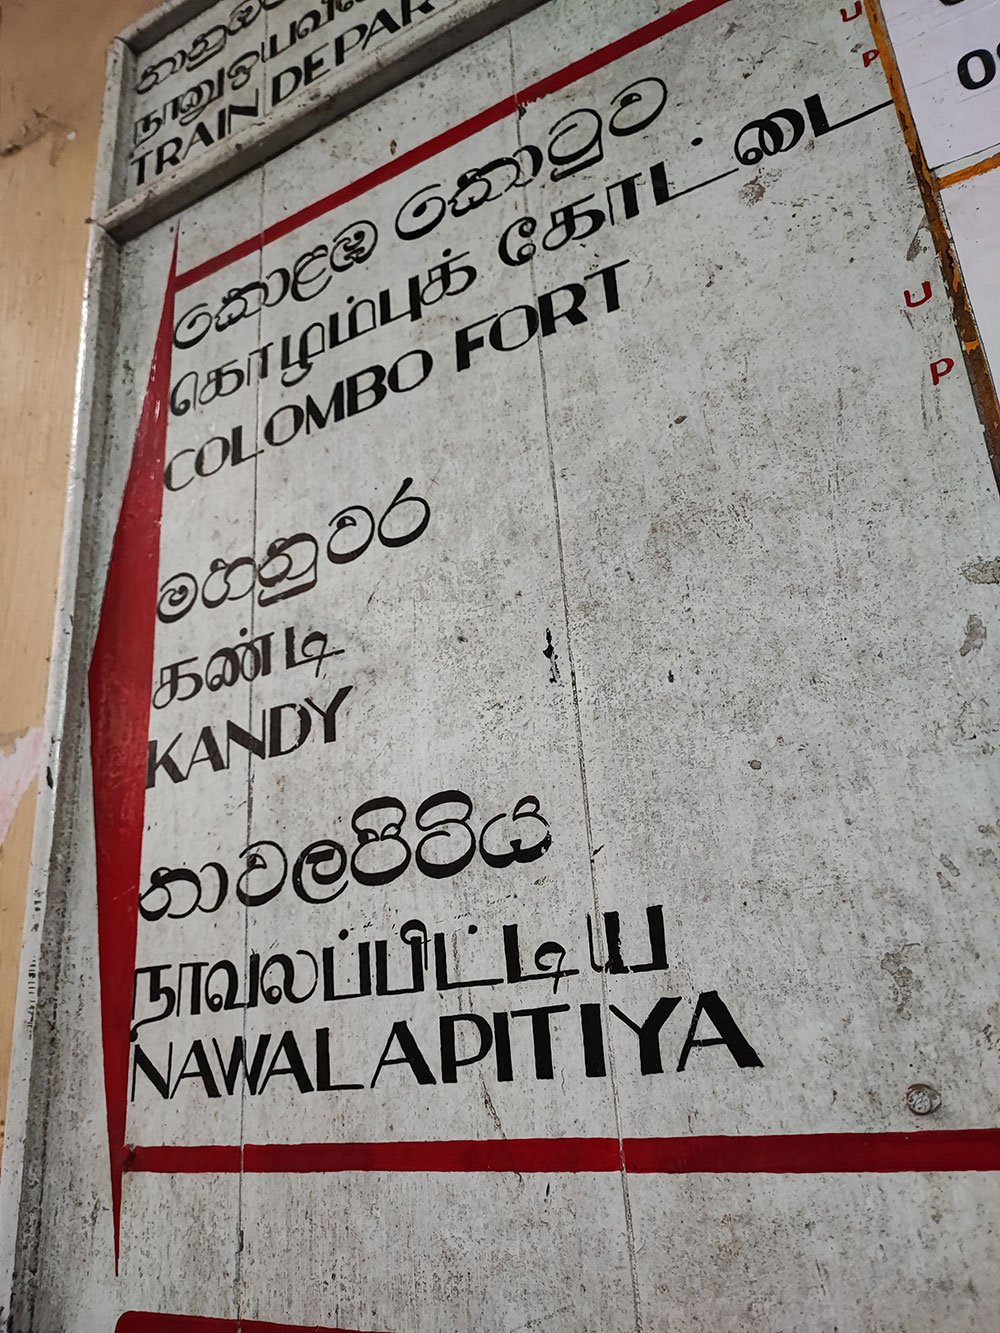 நானுஓயவி
TRAIN DEPAR
කොළඹ කොටුව
கொழும்புக் கோட்டை
COLOMBO FORT
මහනුවර
கண்டி
KANDY
නාවලපිටිය
நாவலப்பிட்டிய
NAWALAPITIYA
U
P
U
P